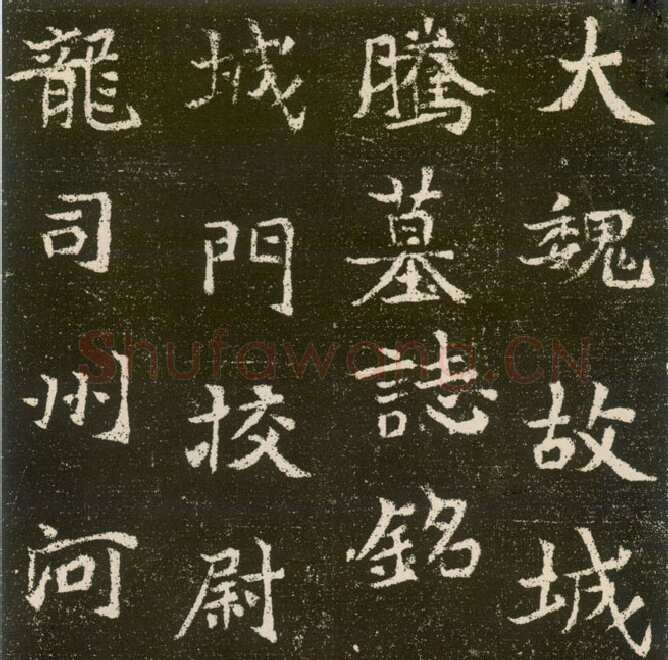 大魏故城
騰墓誌銘
城門校尉
龍司州河
Shufawang.CN